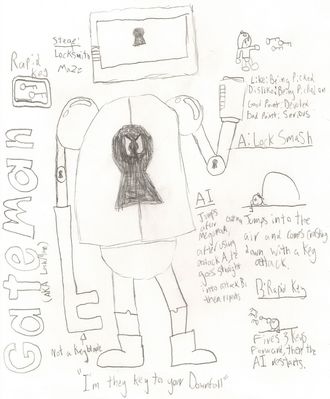 Stage:
Locksmith
Maze
Rapid
Key
Gateman
(AKA
Like: Being Picked
Dislike: Being Picked on
Good Point: Devoted
Bad Point: Serious
A: Lock Smash
Jumps into the
air and comes crashing
down with a Key
attack.
AI
Jumps
after
megaman
after using
attack A, he
goes straight
into attack B,
then repeats
B: Rapid Key
Fires 3 Keys
Forward, then the
AI restarts.
Not a Keyblade
"I'm they key to your Downfall"